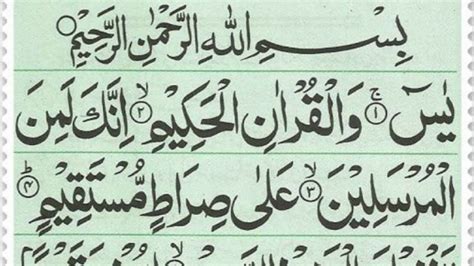 بِسْمِ اللهِ الرَّحْمٰنِ الرَّحِيْمِ
يٰسٓ ۚ﴿۱﴾ وَالْقُرْاٰنِ الْحَكِيْمِ ۙ﴿۲﴾ اِنَّكَ لَمِنَ
الْمُرْسَلِيْنَ ۙ﴿۳﴾ عَلٰى صِرَاطٍ مُّسْتَقِيْمٍ ؕ﴿۴﴾